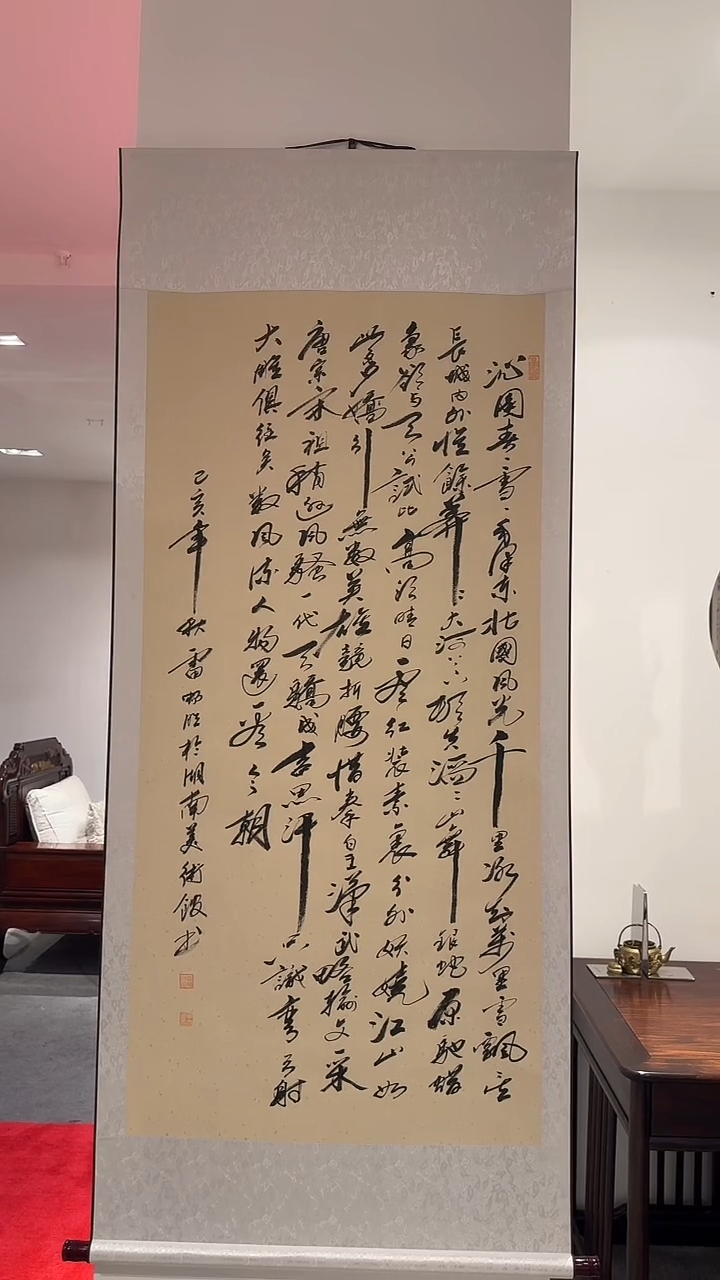 沁園春·雪·毛澤东北國风光千里冰封萬里雪飄望
長城内外惟餘莽〻大河上下頓失滔〻山舞銀蛇原馳蠟
象欲与天公試比高須晴日看红裝素裹分外妖嬈江山如
此多嬌引無數英雄競折腰惜秦皇漢武略輸文采
唐宗宋祖稍遜风騷一代天驕成吉思汗只識彎弓射
大雕俱往矣數风流人物還看今朝
己亥年秋雷於湖南美術館书